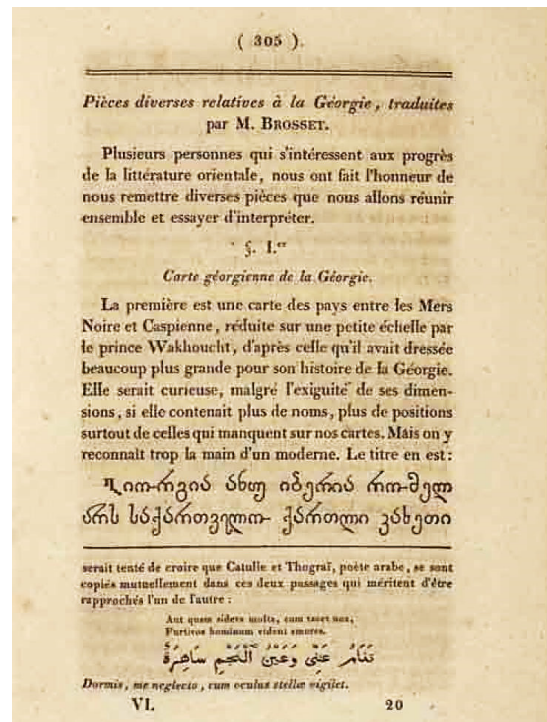 ( 305 )
Pièces diverses relatives à la Géorgie, traduites
par M. BROSSET.
Plusieurs personnes qui s'intéressent aux progrès
de la littérature orientale, nous ont fait l'honneur de
nous remettre diverses pièces que nous allons réunir
ensemble et essayer d'interpréter.
§. I.er
Carte géorgienne de la Géorgie.
La première est une carte des pays entre les Mers
Noire et Caspienne, réduite sur une petite échelle par
le prince Wakhoucht, d'après celle qu'il avait dressée
beaucoup plus grande pour son histoire de la Géorgie.
Elle serait curieuse, malgré l'exiguité de ses dimen-
sions, si elle contenait plus de noms, plus de positions
surtout de celles qui manquent sur nos cartes. Mais on y
reconnaît trop la main d'un moderne. Le titre en est:
გიორგია ანუ იბერია რომელ
არს საქართველო ქართლი კახეთი
serait tenté de croire que Catulle et Thograï, poète arabe, se sont
copiés mutuellement dans ces deux passages qui méritent d'être
rapprochés l'un de l'autre :
Aut quam sidera multa, cum tacet nox,
Furtivos hominum vident amores.
تَنَامُ عَنِّى وَعَيْنُ ٱلنَّجْمِ سَاهِرَةٌ
Dormis, me neglecto, cum oculus stellæ vigilet.
VI. 20